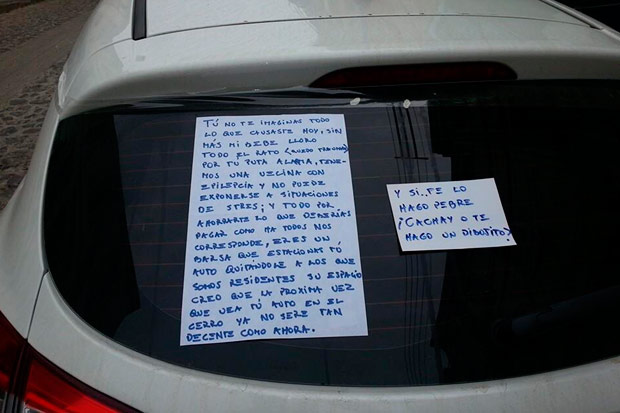 TÚ NO TE IMAGINAS TODO
LO QUE CAUSASTE HOY, SIN
MÁS MI BEBE LLORO
TODO EL RATO (QUEDO TRAUMA)
POR TU PUTA ALARMA, TENE-
MOS UNA VECINA CON
EPILEPCÍA Y NO PUEDE
EXPONERSE A SITUACIONES
DE STRES; Y TODO POR
AHORRARTE LO QUE DEBERÍAS
PAGAR COMO HA TODOS NOS
CORRESPONDE, ERES UN
BARSA QUE ESTACIONAS TÚ
AUTO QUITÁNDOLE A LOS QUE
SOMOS RESIDENTES SU ESPACIO
CREO QUE LA PROXIMA VEZ
QUE VEA TÚ AUTO EN EL
CERRO YA NO SERE TAN
DECENTE COMO AHORA.
Y SI, TE LO
HAGO PEBRE
¡CACHAY O TE
HAGO UN DIBUJITO?